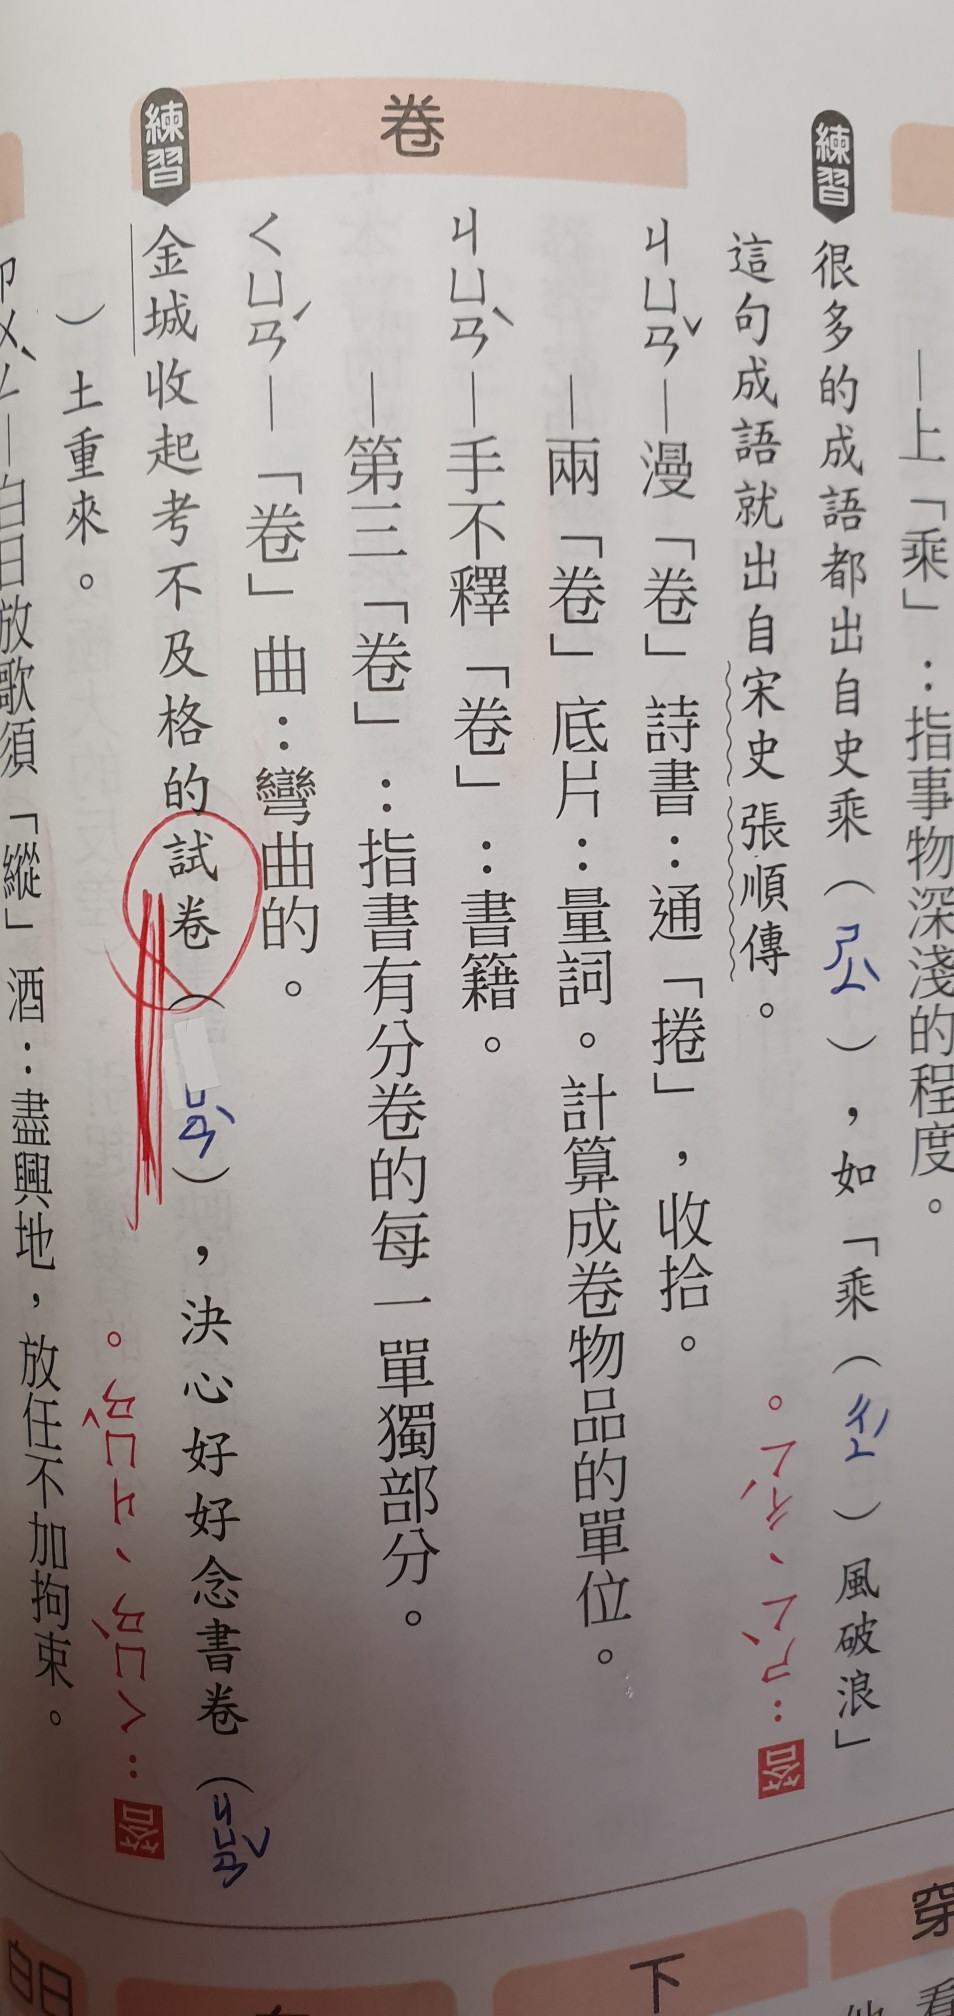 —上「乘」：指事物深淺的程度。
練習
很多的成語都出自史乘（ㄕㄥˋ），如「乘（ㄔㄥˊ）風破浪」
這句成語就出自宋史張順傳。
答：ㄕㄥˋ、ㄔㄥˊ。
卷
ㄐㄩㄢˇ—漫「卷」詩書：通「捲」，收拾。
—兩「卷」底片：量詞。計算成卷物品的單位。
ㄐㄩㄢˋ—手不釋「卷」：書籍。
—第三「卷」：指書有分卷的每一單獨部分。
ㄑㄩㄢˊ—「卷」曲：彎曲的。
練習
金城收起考不及格的試卷（ㄩㄢˋ），決心好好念書卷（ㄐㄩㄢˇ
）土重來。
答：ㄑㄩㄢˋ、ㄐㄩㄢˇ。
白日放歌須「縱」酒：盡興地，放任不加拘束。
穿
看
下